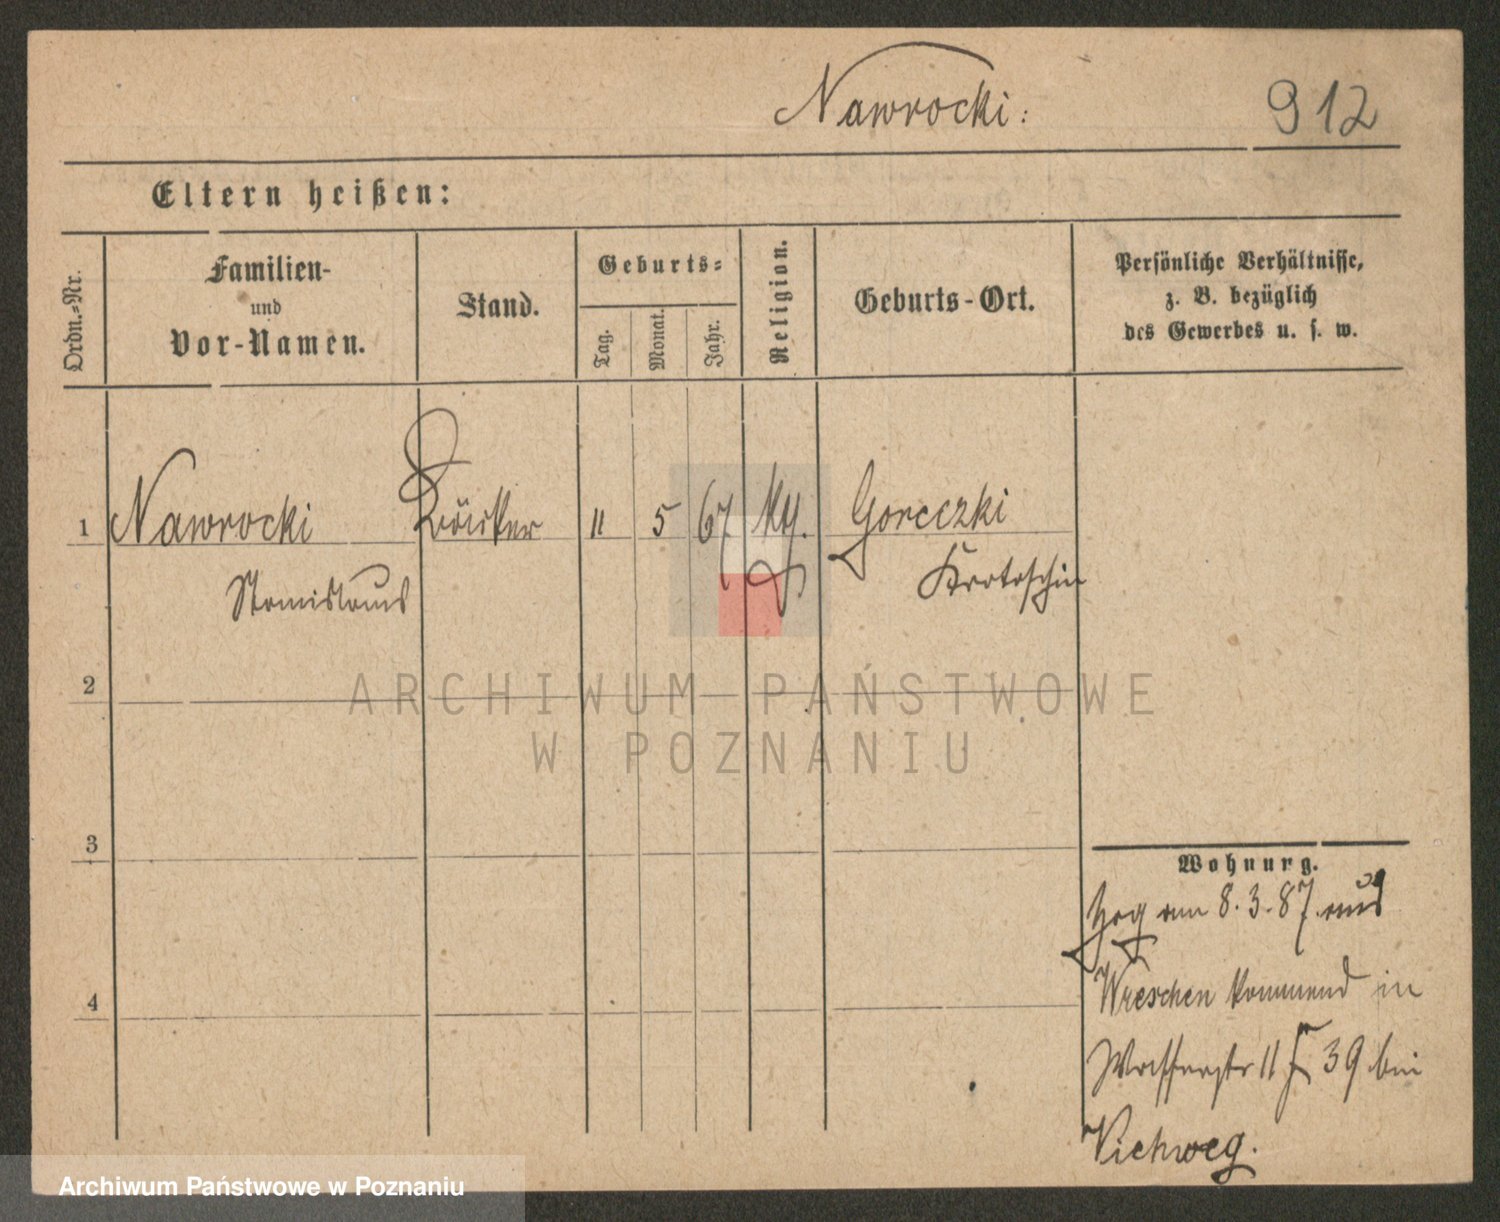 Nawrocki:
912
Eltern heißen:
Ordn.-Nr.
Familien-
und
Vor-Namen.
Stand.
Geburts-
Tag.
Monat.
Jahr.
Religion.
Geburts-Ort.
Persönliche Verhältnisse,
z. B. bezüglich
des Gewerbes u. s. w.
1 Nawrocki 11 5 67 kth. Goreczki
Stanislaus Krotoschin
2
ARCHIWUM PAŃSTWOWE
W POZNANIU
3
Wohnung.
Zog am 8.3.87. aus
4
Wreschen kommend in
Wasserstr 11 39 bei
Viehweg.
Archiwum Państwowe w Poznaniu